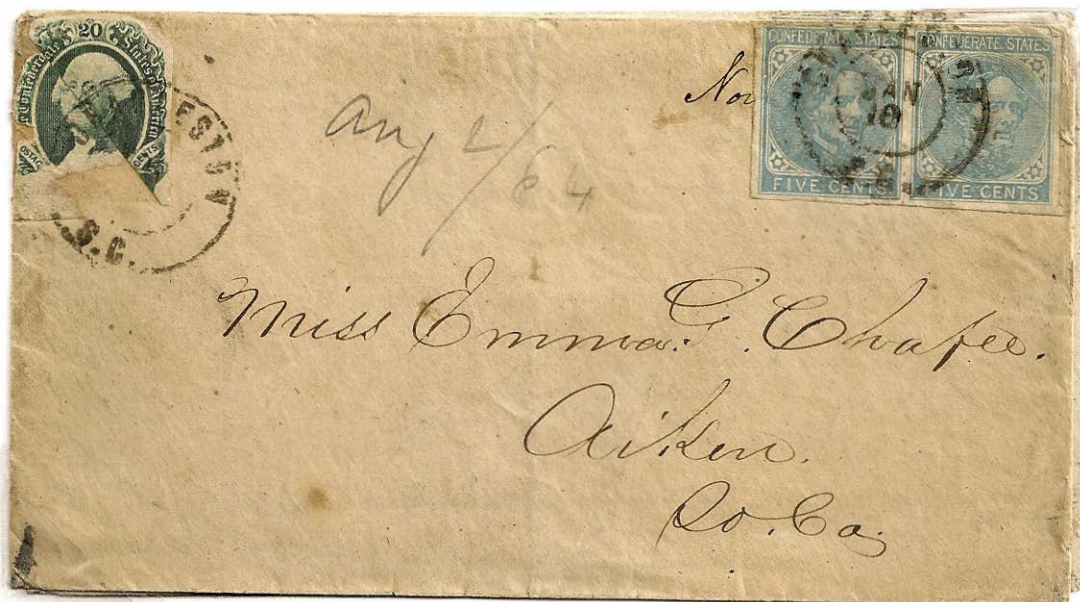 20
Confederate States of America
CENTS
ESTON
S.C.
CONFEDERATE STATES
FIVE CENTS
CONFEDERATE STATES
FIVE CENTS
JAN
10
Nov
Aug 2/64
Miss Emma G. Chafee.
Aiken.
So. Ca.